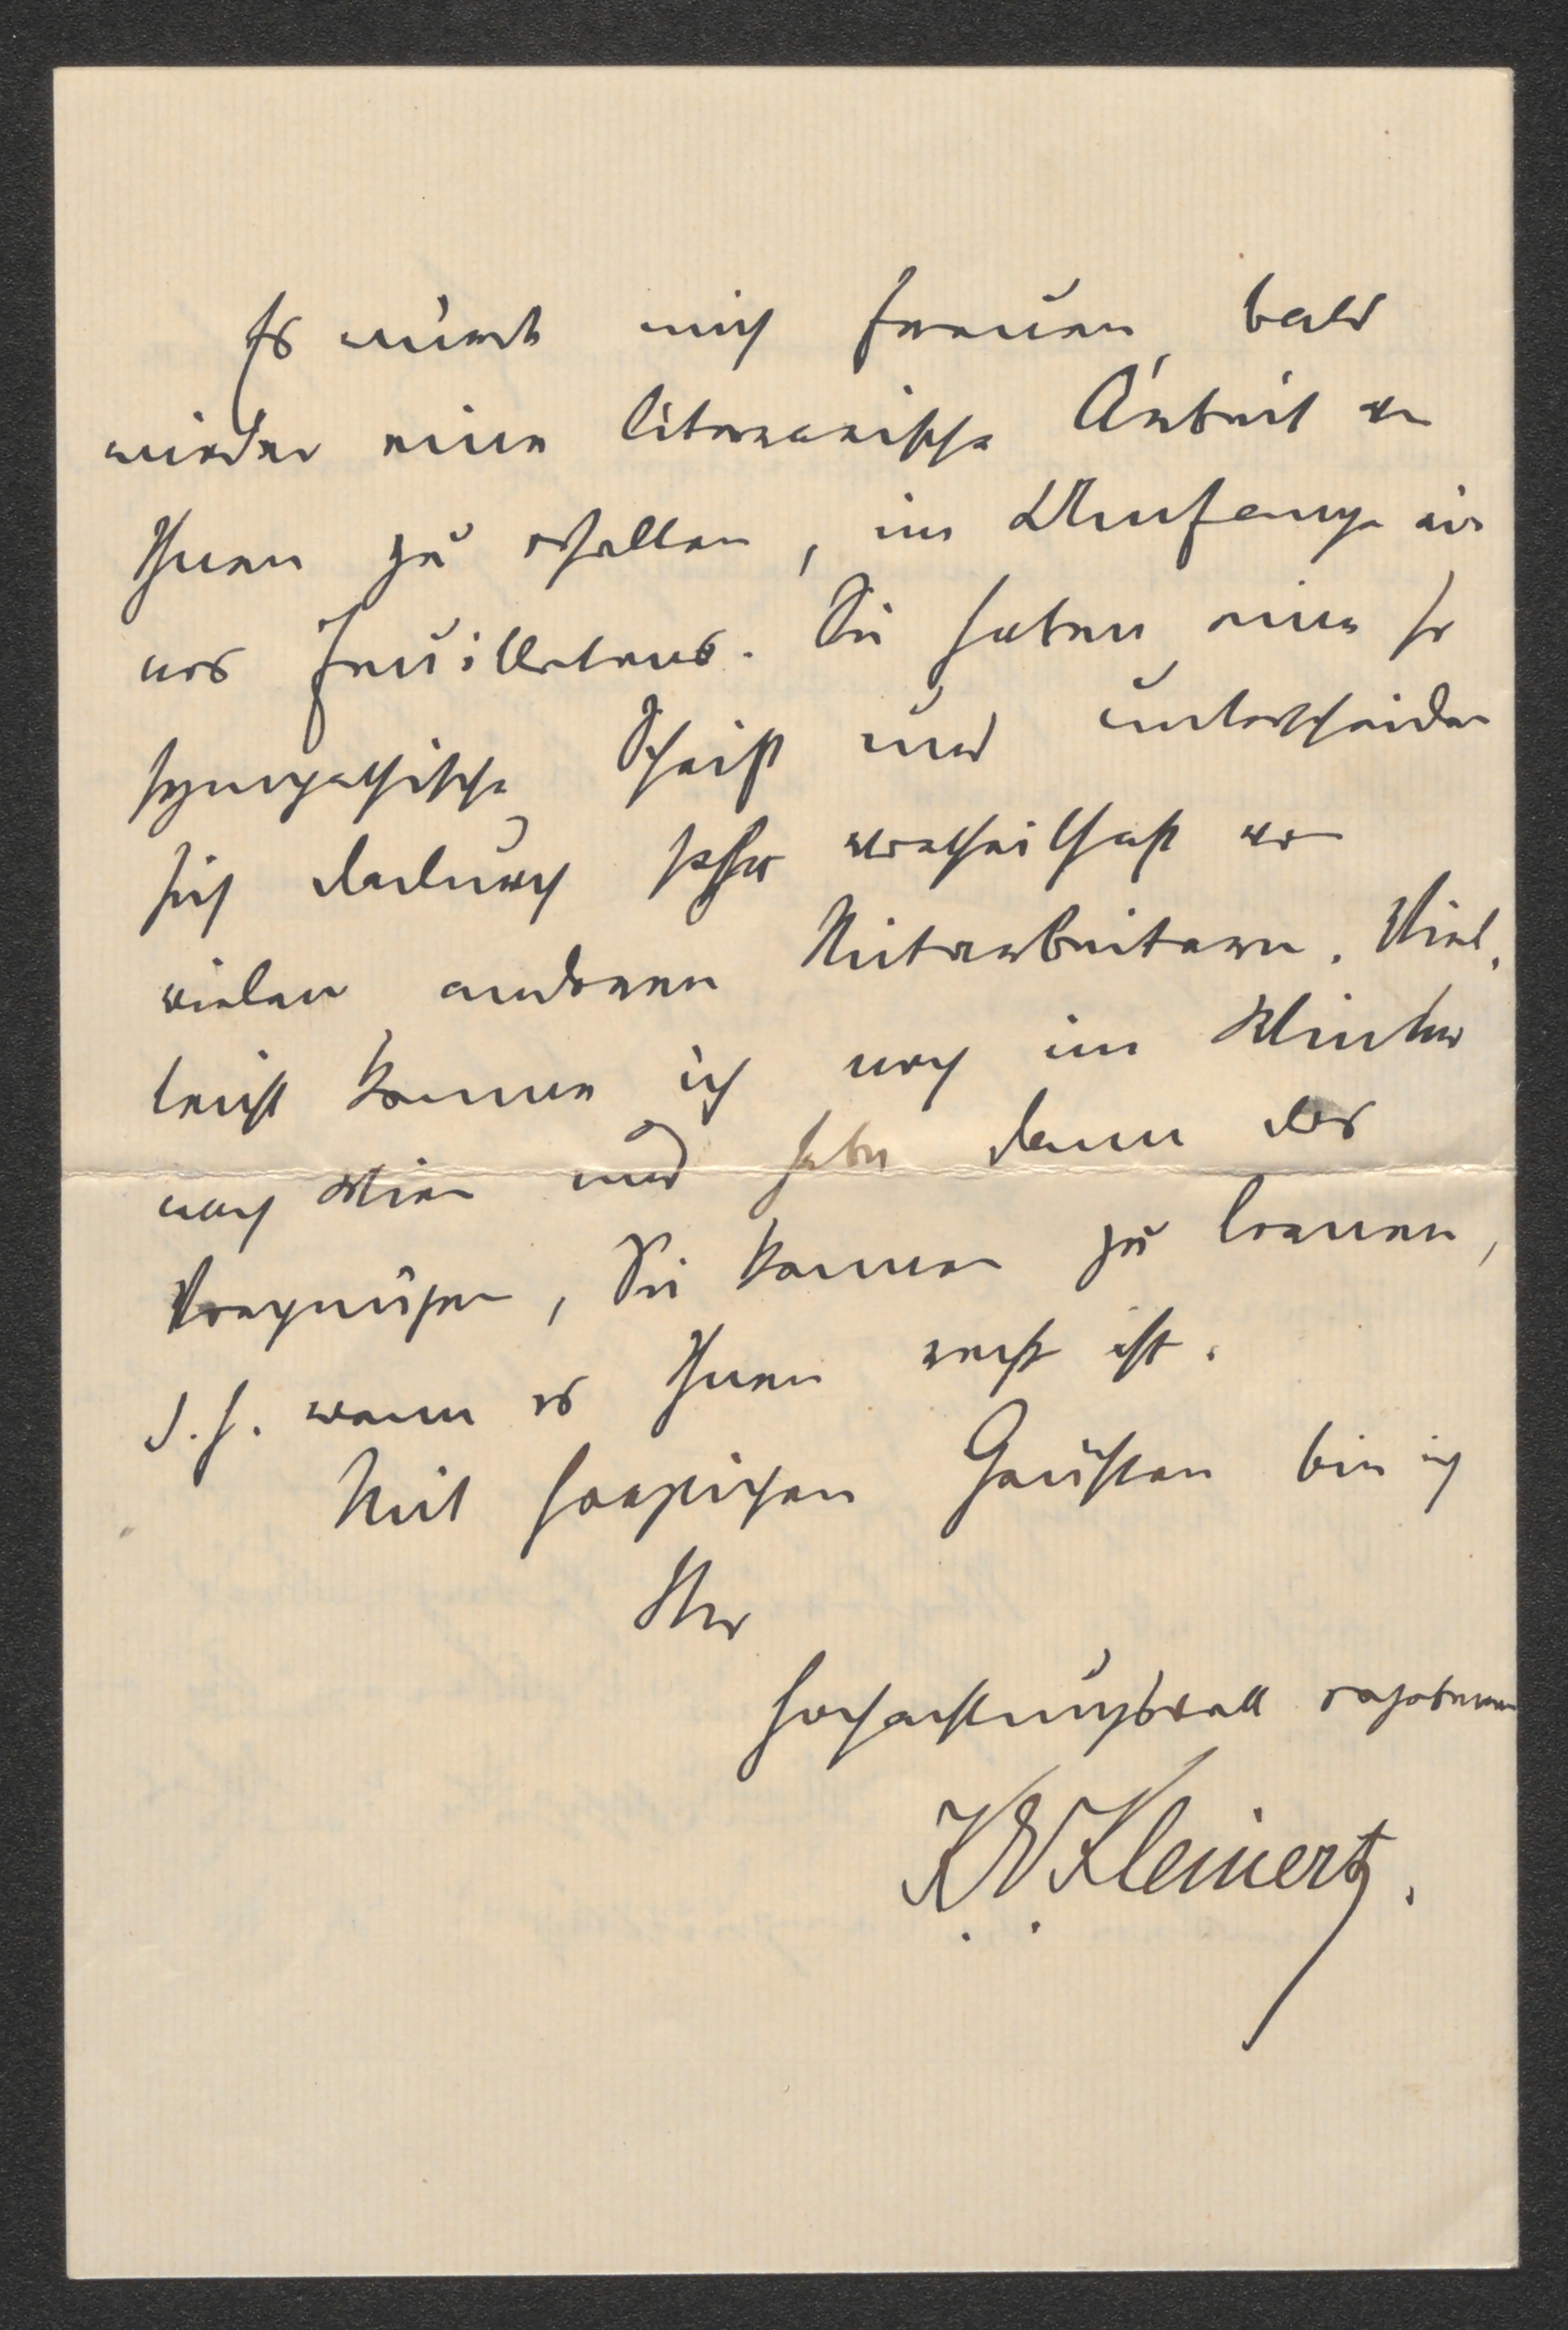 Es würde mich freuen, bald
wieder eine literarische Arbeit von
Ihnen zu erhalten, im Umfange ei-
nes Feuilletons. Sie haben eine so
sympathische Schrift und unterscheiden
sich dadurch sehr vortheilhaft von
vielen anderen Mitarbeitern. Viel-
leicht komme ich noch im Winter
nach Wien und habe dann das
Vergnügen, Sie kennen zu lernen,
d. h. wenn es Ihnen recht ist.
Mit herzlichen Grüßen bin ich
Ihr
hochachtungsvoll ergebener
K. W. Kleinert.